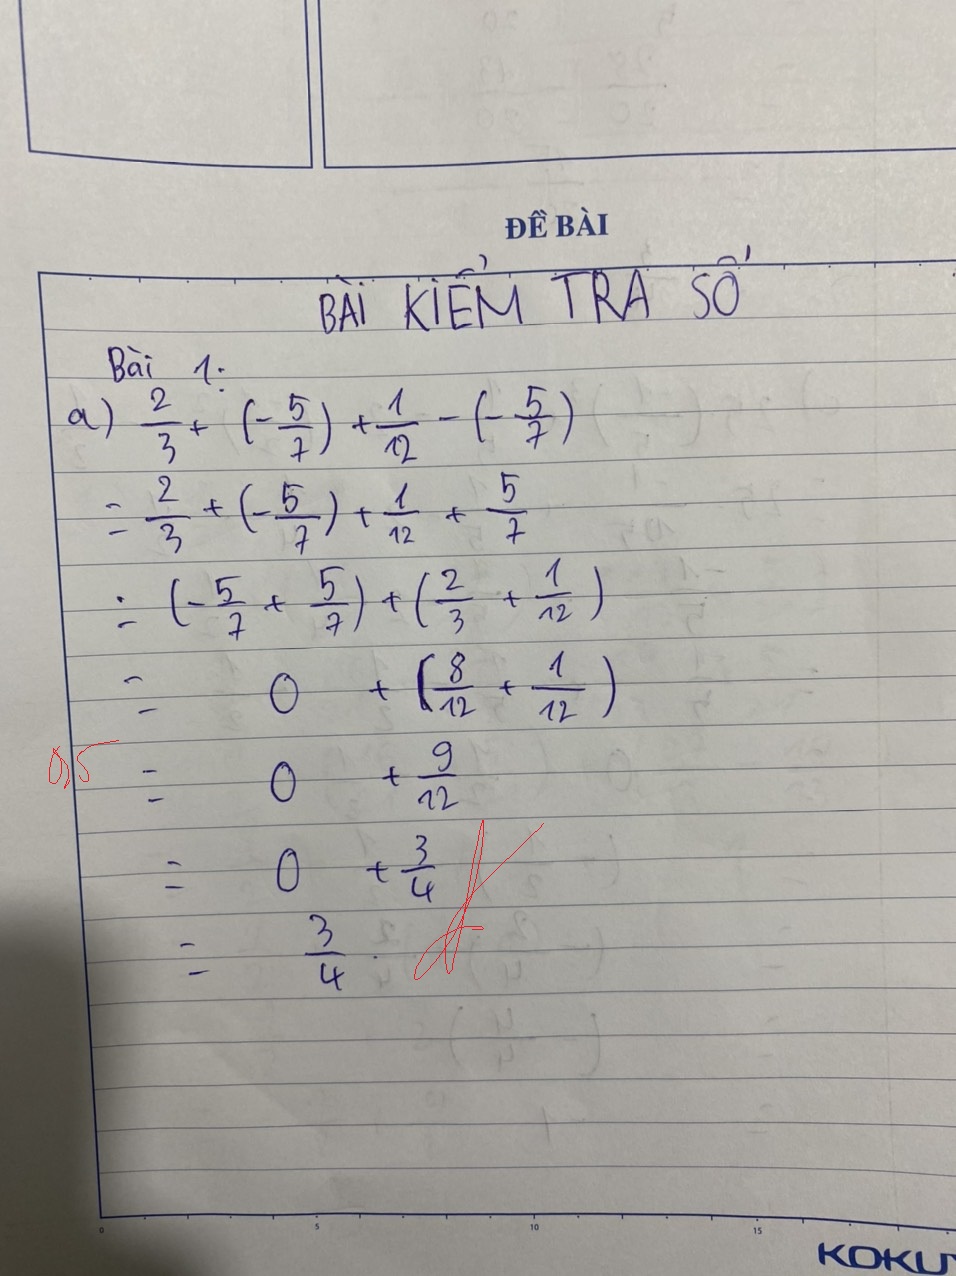 ĐỀ BÀI
BÀI KIỂM TRA SỐ
Bài 1:
a) 2/3 + (-5/7) + 1/12 - (-5/7)
= 2/3 + (-5/7) + 1/12 + 5/7
= (-5/7 + 5/7) + (2/3 + 1/12)
= 0 + (8/12 + 1/12)
0,5 = 0 + 9/12
= 0 + 3/4
= 3/4.
0 5 10 15